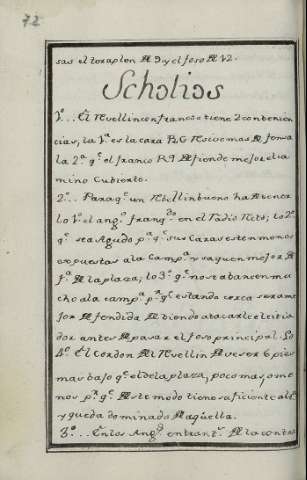 72
sas el toraplen de 9 y el foso de 12.
Scholios
1º... El Revellin con francos tiene 2 convenien
cias, la 1ª es la cara R G de mas defensa
la 2ª qᵉ el franco R 9 defiende mejor el ca
mino Cubierto.
2º.. Para qᵉ un Rebellin bueno ha de tener
lo 1º el angº franqdº en el Radio Rito; lo 2º
qᵉ sea Agudo pª qᵉ sus Caras esten menos
expuestas a la Campª y saquen mejor
fª de la plaza; lo 3º qᵉ no se abansen mu
cho a la campª pʳ qᵉ estando cerca sera me
jor defendida debiendo atacarle el citia
dor antes de pasar el foso principal. Lo
4º. El Cordon del Revellin de ver 6 pies
mas bajo qᵉ el de la plaza, poco mas, o me
nos pʳ qᵉ de este modo tiene suficiente alt
y queda dominado de aquella.
3º... En los Angˢ entrantˢ de la contra